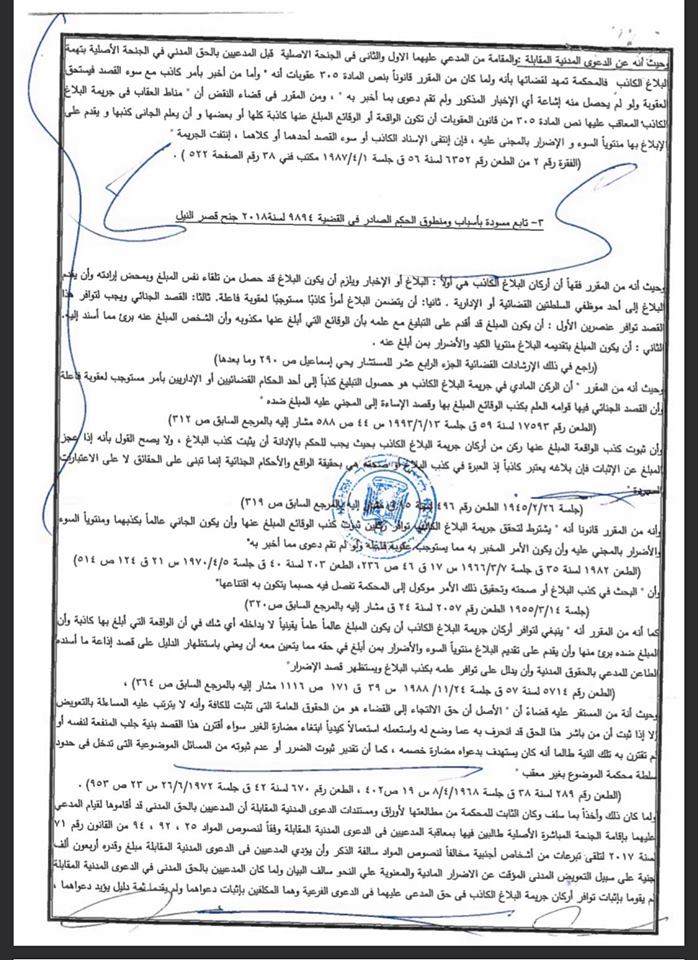 وحيث أنه عن الدعوى المدنية المقابلة : والمقامة من المدعي عليهما الاول والثانى فى الجنحة الاصلية قبل المدعيين بالحق المدني في الجنحة الأصلية بتهمة
البلاغ الكاذب فالمحكمة تمهد لقضائها بأنه ولما كان من المقرر قانوناً بنص المادة ٣٠٥ عقوبات أنه " وأما من أخبر بأمر كاذب مع سوء القصد فيستحق
العقوبة ولو لم يحصل منه إشاعة أي الإخبار المذكور ولم تقم دعوى بما أخبر به " ، ومن المقرر فى قضاء النقض أن " مناط العقاب فى جريمة البلاغ
الكاذب المعاقب عليها نص المادة ٣٠٥ من قانون العقوبات أن تكون الواقعة أو الوقائع المبلغ عنها كاذبة كلها أو بعضها و أن يعلم الجانى كذبها و يقدم على
الإبلاغ بها منتوياً السوء و الإضرار بالمجنى عليه ، فإن إنتفى الإسناد الكاذب أو سوء القصد أحدهما أو كلاهما ، إنتفت الجريمة "
(الفقرة رقم ٢ من الطعن رقم ٦٣٥٢ لسنة ٥٦ ق جلسة ١٩٨٧/٤/١ مكتب فني ٣٨ رقم الصفحة ٥٢٢ ) .
٣- تابع مسودة بأسباب ومنطوق الحكم الصادر فى القضية ٩٨٩٤ لسنة٢٠١٨ جنح قصر النيل
وحيث أنه من المقرر فقهاً أن أركان البلاغ الكاذب هي أولاً : البلاغ أو الإخبار ويلزم أن يكون البلاغ قد حصل من تلقاء نفس المبلغ وبمحض إرادته وأن يقدم
البلاغ إلى أحد موظفي السلطتين القضائية أو الإدارية . ثانيا: أن يتضمن البلاغ أمراً كاذبًا مستوجبًا لعقوبة فاعلة. ثالثا: القصد الجنائي ويجب لتوافر هذا
القصد توافر عنصرين الأول : أن يكون المبلغ قد أقدم على التبليغ مع علمه بأن الوقائع التي أبلغ عنها مكذوبه وأن الشخص المبلغ عنه برئ مما أسند إليه.
الثاني : أن يكون المبلغ بتقديمه البلاغ منتويا الكيد والأضرار بمن أبلغ عنه .
(راجع في ذلك الإرشادات القضائية الجزء الرابع عشر للمستشار يحي إسماعيل ص ٢٩٠ وما بعدها)
وحيث أنه من المقرر " أن الركن المادي في جريمة البلاغ الكاذب هو حصول التبليغ كذباً إلى أحد الحكام القضائيين أو الإداريين بأمر مستوجب لعقوبة فاعلة
وأن القصد الجنائي فيها قوامه العلم بكذب الوقائع المبلغ بها وقصد الإساءة إلى المجني عليه المبلغ ضده "
(الطعن رقم ١٧٥٩٣ لسنة ٥٩ ق جلسة ١٩٩٣/٦/١٣ س ٤٤ ص ٥٨٨ مشار إليه بالمرجع السابق ص ٣١٢)
وأن ثبوت كذب الواقعة المبلغ عنها ركن من أركان جريمة البلاغ الكاذب بحيث يجب للحكم بالإدانة أن يثبت كذب البلاغ ، ولا يصح القول بأنه إذا عجز
المبلغ عن الإثبات فإن بلاغه يعتبر كاذباً إذ العبرة في كذب البلاغ أو صحته هي بحقيقة الواقع والأحكام الجنائية إنما تبنى على الحقائق لا على الاعتبارات
المجردة "
(جلسة ١٩٤٥/٢/٢٦ الطعن رقم ٤٩٦ لسنة ١٥ ق مشار إليه بالمرجع السابق ص ٣١٩)
وأنه من المقرر قانونا أنه " يشترط لتحقق جريمة البلاغ الكاذب توافر ركنين ثبوت كذب الوقائع المبلغ عنها وأن يكون الجاني عالماً بكذبهما ومنتوياً السوء
والأضرار بالمجني عليه وأن يكون الأمر المخبر به مما يستوجب عقوبة فاعلة ولو لم تقم دعوى مما أخبر به"
(الطعن ١٩٨٢ لسنة ٣٥ ق جلسة ١٩٦٦/٣/٧ س ١٧ ق ٤٦ ص ٢٣٦، الطعن ٢٠٣ لسنة ٤٠ ق جلسة ١٩٧٠/٤/٥ س ٢١ ق ١٢٤ ص ٥١٤)
وأن " البحث في كذب البلاغ أو صحته وتحقيق ذلك الأمر موكول إلى المحكمة تفصل فيه حسبما يتكون به اقتناعها"
(جلسة ١٩٥٥/٣/١٤ الطعن رقم ٢٠٥٧ لسنة ٢٤ ق مشار إليه بالمرجع السابق ص ٣٢٠)
كما أنه من المقرر أنه " ينبغي لتوافر أركان جريمة البلاغ الكاذب أن يكون المبلغ عالماً علماً يقينياً لا يداخله أي شك في أن الواقعة التي أبلغ بها كاذبة وأن
المبلغ ضده برئ منها وأن يقدم على تقديم البلاغ منتوياً السوء والأضرار بمن أبلغ في حقه مما يتعين معه أن يعني باستظهار الدليل على قصد إذاعة ما أسنده
الطاعن للمدعي بالحقوق المدنية وأن يدلل على توافر علمه بكذب البلاغ ويستظهر قصد الإضرار"
(الطعن رقم ٥٧١٤ لسنة ٥٧ ق جلسة ١٩٨٨ /١١/٢٤ س ٣٩ ق ١٧١ ص ١١١٦ مشار إليه بالمرجع السابق ص ٣٦٤) ،
وحيث أنه من المستقر عليه قضاءً أن " الأصل أن حق الالتجاء إلى القضاء هو من الحقوق العامة التى تثبت للكافة وأنه لا يترتب عليه المساءلة بالتعويض
إلا إذا ثبت أن من باشر هذا الحق قد انحرف به عما وضع له واستعمله استعمالاً كيدياً ابتغاء مضارة الغير سواء أقترن هذا القصد بنية جلب المنفعة لنفسه أو
لم تقترن به تلك النية طالما أنه كان يستهدف بدعواه مضارة خصمه ، كما أن تقدير ثبوت الضرر أو عدم ثبوته من المسائل الموضوعية التى تدخل فى حدود
سلطة محكمة الموضوع بغير معقب "
(الطعن رقم ٢٨٩ لسنة ٣٨ ق جلسة ٨/٤/١٩٦٨ س ١٩ ص٤٠٢ ، الطعن رقم ٦٧٠ لسنة ٤٢ ق جلسة ٢٦/٦/١٩٧٢ س ٢٣ ص ٩٥٣) .
ولما كان ذلك وأخذاً بما سلف وكان الثابت للمحكمة من مطالعتها لأوراق ومستندات الدعوى المدنية المقابلة أن المدعيين بالحق المدنى قد أقاموها لقيام المدعي
عليهما بإقامة الجنحة المباشرة الأصلية طالبين فيها بمعاقبة المدعيين فى الدعوى المدنية المقابلة وفقاً لنصوص المواد ٢٥ ، ٩٢ ، ٩٤ من القانون رقم ٧١
لسنة ٢٠١٧ لتلقى تبرعات من أشخاص أجنبية مخالفاً لنصوص المواد سالفة الذكر وأن يؤدي المدعيين فى الدعوى المدنية المقابلة مبلغ وقدره أربعون ألف
جنية على سبيل التعويض المدنى المؤقت عن الاضرار المادية والمعنوية علي النحو سالف البيان ولما كان المدعيين بالحق المدنى فى الدعوى المدنية المقابلة
لم يقوما بإثبات توافر أركان جريمة البلاغ الكاذب فى حق المدعى عليهما فى الدعوى الفرعية وهما المكلفين بإثبات دعواهما ولم يقدما ثمة دليل يؤيد دعواهما ،